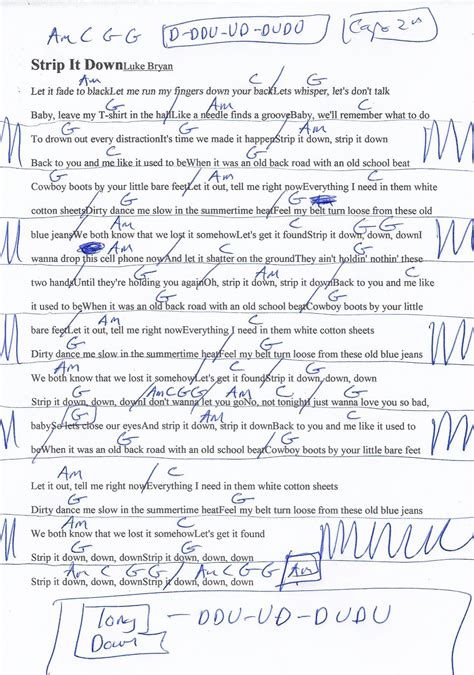 Am C G G D-DDU-UD-DUDU Capo 2nd
Strip It DownLuke Bryan
Am C G
Let it fade to blackLet me run my fingers down your backLets whisper, let's don't talk
G Am
Baby, leave my T-shirt in the hallLike a needle finds a grooveBaby, we'll remember what to do
G G Am
To drown out every distractionIt's time we made it happenStrip it down, strip it down
C G
Back to you and me like it used to beWhen it was an old back road with an old school beat
G Am C
Cowboy boots by your little bare feetLet it out, tell me right nowEverything I need in them white
G G
cotton sheetsDirty dance me slow in the summertime heatFeel my belt turn loose from these old
Am C G
blue jeansWe both know that we lost it somehowLet's get it foundStrip it down, down, downI
Am C G
wanna drop this cell phone nowAnd let it shatter on the groundThey ain't holdin' nothin' these
G Am C
two handsUntil they're holding you againOh, strip it down, strip it downBack to you and me like
G G
it used to beWhen it was an old back road with an old school beatCowboy boots by your little
Am C
bare feetLet it out, tell me right nowEverything I need in them white cotton sheets
G G
Dirty dance me slow in the summertime heatFeel my belt turn loose from these old blue jeans
Am C G
We both know that we lost it somehowLet's get it foundStrip it down, down, down
G Am C G G Am C
Strip it down, down, downI don't wanna let you goNo, not tonightI just wanna love you so bad,
G Am C
babySo lets close our eyesAnd strip it down, strip it downBack to you and me like it used to
G G
beWhen it was an old back road with an old school beatCowboy boots by your little bare feet
Am C
Let it out, tell me right nowEverything I need in them white cotton sheets
G G
Dirty dance me slow in the summertime heatFeel my belt turn loose from these old blue jeans
Am C
We both know that we lost it somehowLet's get it found
G G
Strip it down, down, downStrip it down, down, down
Am C G G Am C G G Am
Strip it down, down, downStrip it, down, down, down
long Down - DDU-UD-DUDU